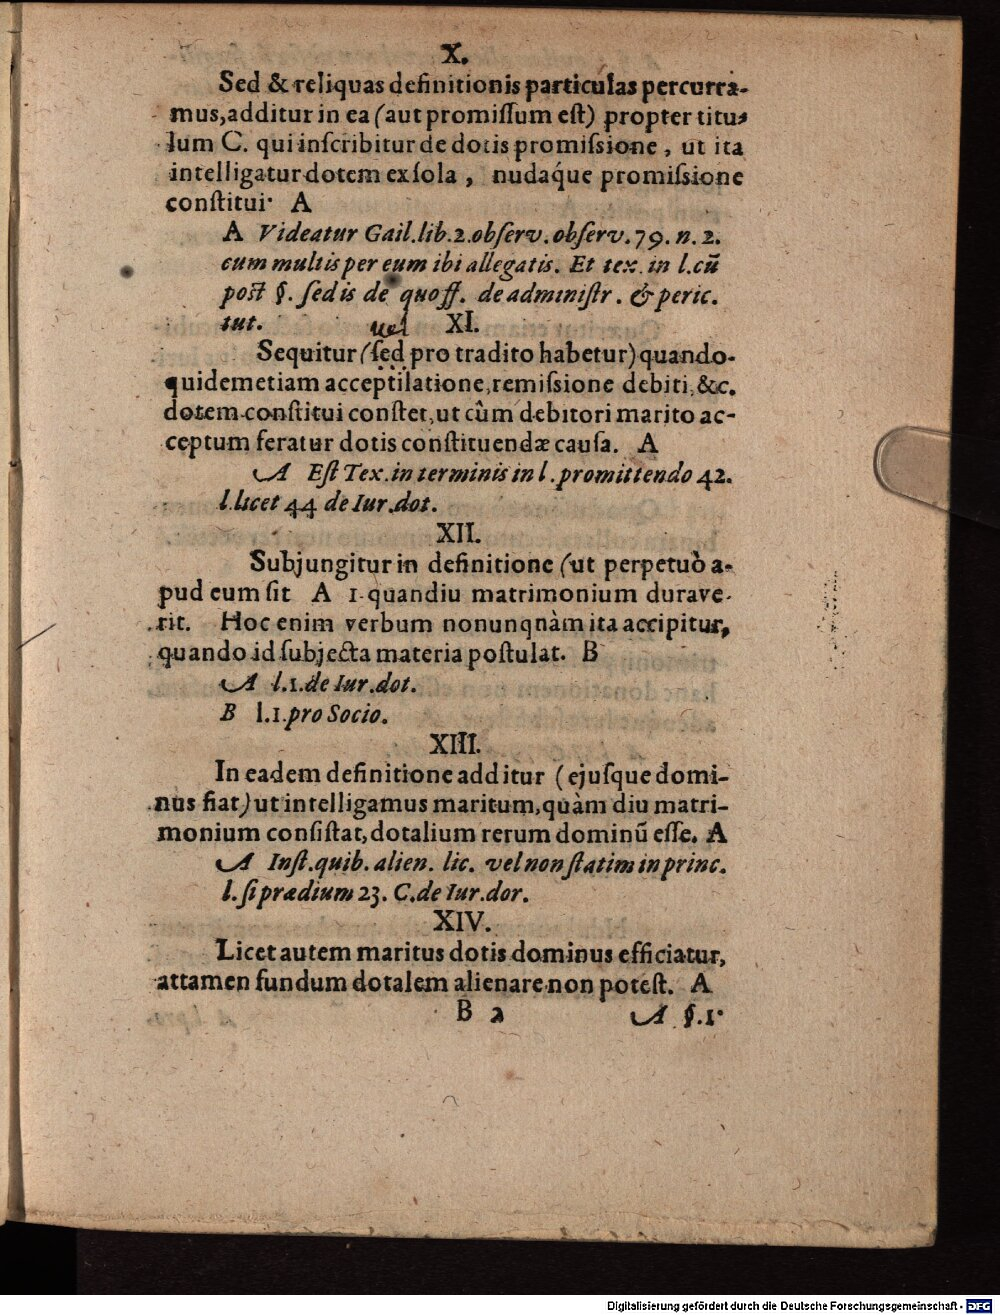 X.
Sed & reliquas definitionis particulas percurra-
mus, additur in ea (aut promiſſum eſt) propter titu-
lum C. qui inſcribitur de dotis promiſsione, ut ita
intelligatur dotem ex ſola, nudaq́ue promiſsione
conſtitui. A
A Videatur Gail. lib. 2. obſerv. obſerv. 79. n. 2.
cum multis per eum ibi allegatis. Et tex. in l. cū
poſt §. ſed is de quoff. de adminiſtr. & peric.
tut.
vel
XI.
Sequitur (ſed pro tradito habetur) quando-
quidem etiam acceptilatione, remiſsione debiti, &c.
dotem conſtitui conſtet, ut cùm debitori marito ac-
ceptum feratur dotis conſtituendæ cauſa. A
A Eſt Tex. in terminis in l. promittendo 42.
l. licet 44 de Iur. dot.
XII.
Subjungitur in definitione (ut perpetuò a-
pud eum ſit A 1. quandiu matrimonium durave-
rit. Hoc enim verbum nonunqnàm ita accipitur,
quando id ſubjecta materia poſtulat. B
A l. 1. de Iur. dot.
B l. 1. pro Socio.
XIII.
In eadem definitione additur (ejuſque domi-
nus fiat) ut intelligamus maritum, quàm diu matri-
monium conſiſtat, dotalium rerum dominū eſſe. A
A Inſt. quib. alien. lic. vel non ſtatim in princ.
l. ſi prædium 23. C. de Iur. dor.
XIV.
Licet autem maritus dotis dominus efficiatur,
attamen fundum dotalem alienare non poteſt. A
B 2 A §. 1.
Digitalisierung gefördert durch die Deutsche Forschungsgemeinschaft - DFG